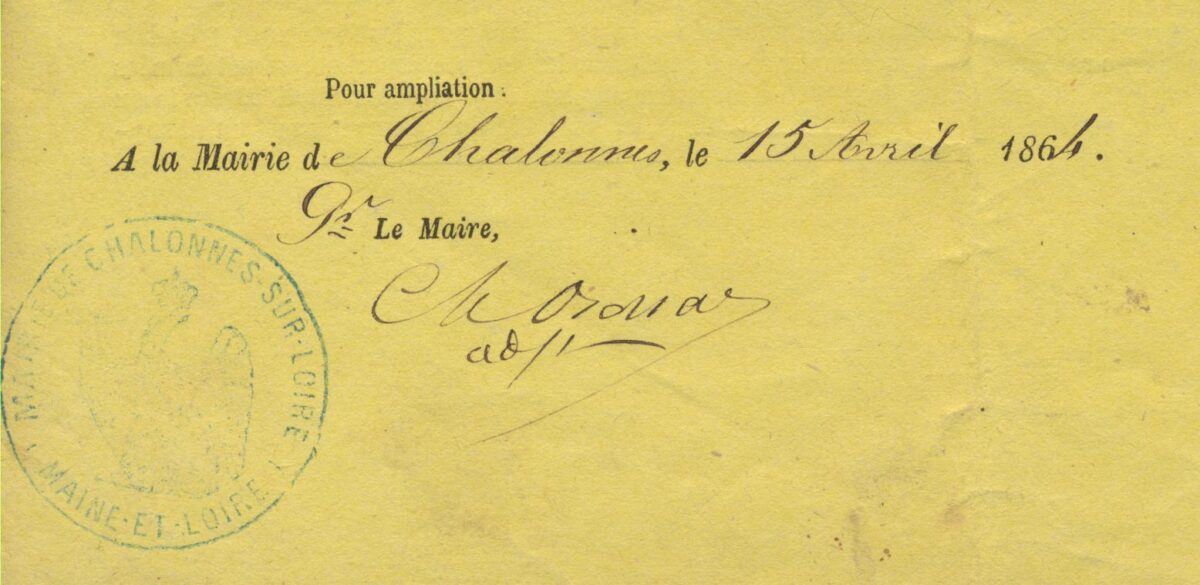 Pour ampliation :
A la Mairie de Chalonnes, le 15 Avril 1864.
Pr Le Maire,
adjt
MAIRIE DE CHALONNES-SUR-LOIRE
MAINE-ET-LOIRE